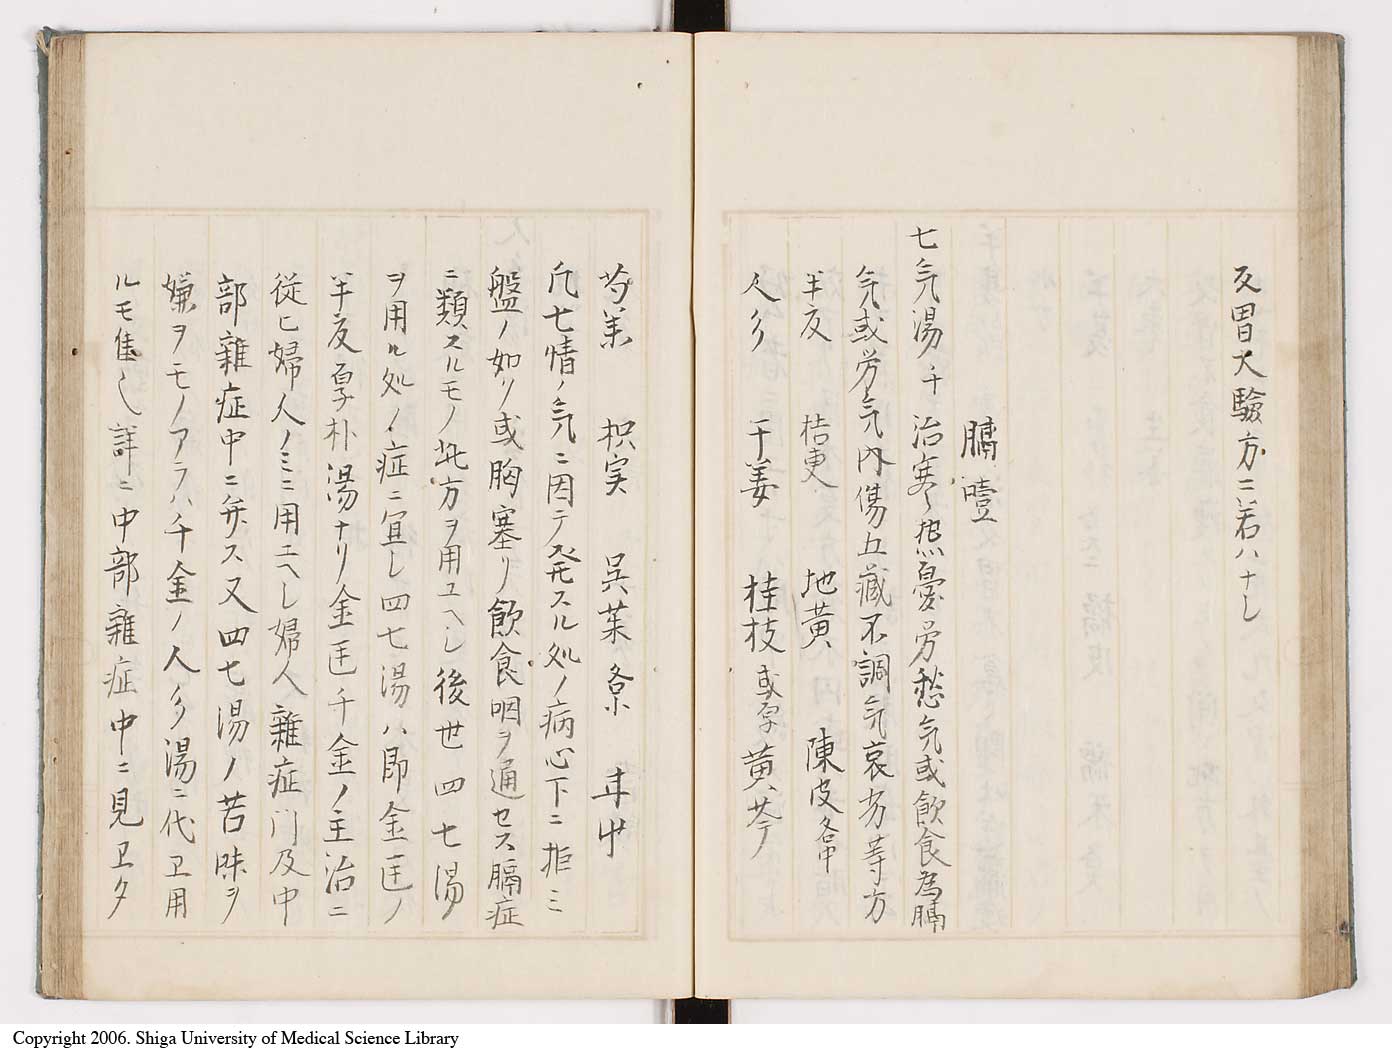 反胃大驗方ニ若ハナし
膈噎
七気湯 千 治寒気怒憂労愁気或飲食為膈
気或労気内傷五藏不調気衰劣等方
半夏 桔更 地黄 陳皮各中
人参 干姜 桂枝 或厚 黄芩ノ
芍薬 枳実 呉茱各小
凡七情ノ気ニ因テ発スル処ノ病心下ニ拒ミ
盤ノ如リ或胸塞リ飲食咽ヲ通セス膈症
ニ類スルモノ此方ヲ用ユヘし後世四七湯
ヲ用ル処ノ症ニ宜し四七湯ハ即金匡ノ
半夏厚朴湯ナリ金匡千金ノ主治ニ
従ヒ婦人ノミニ用ユヘし婦人雜症门及中
部雜症中ニ弁ス又四七湯ノ苦味ヲ
嫌ヲモノアラハ千金ノ人参湯ニ代ヱ用
ルモ佳し詳ニ中部雜症中ニ見ヱタ
Copyright 2006. Shiga University of Medical Science Library